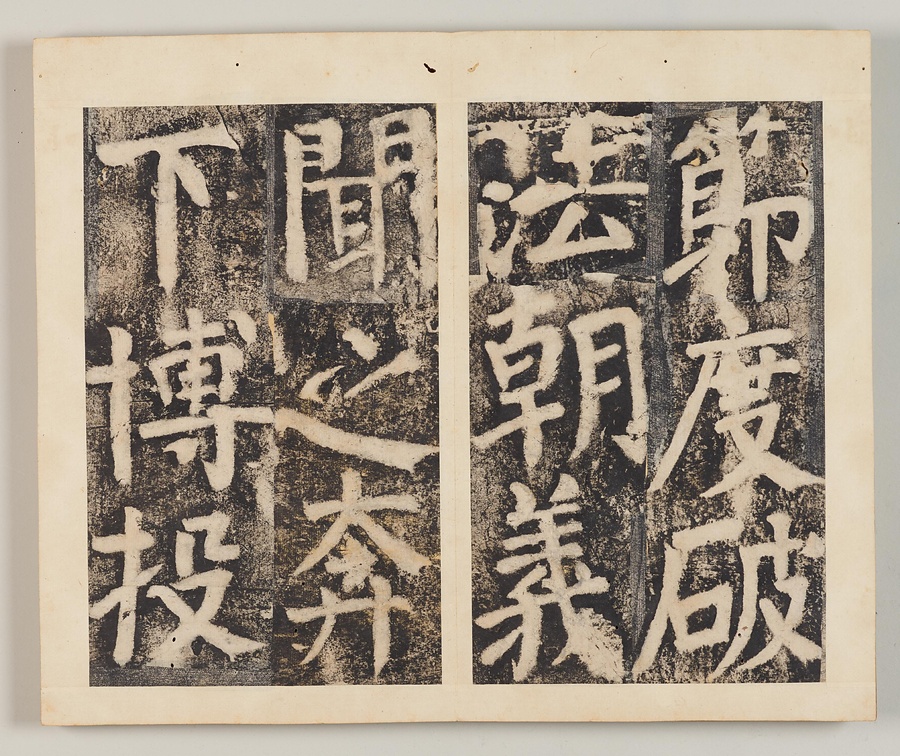 節度破
法朝義
聞之奔
下博投